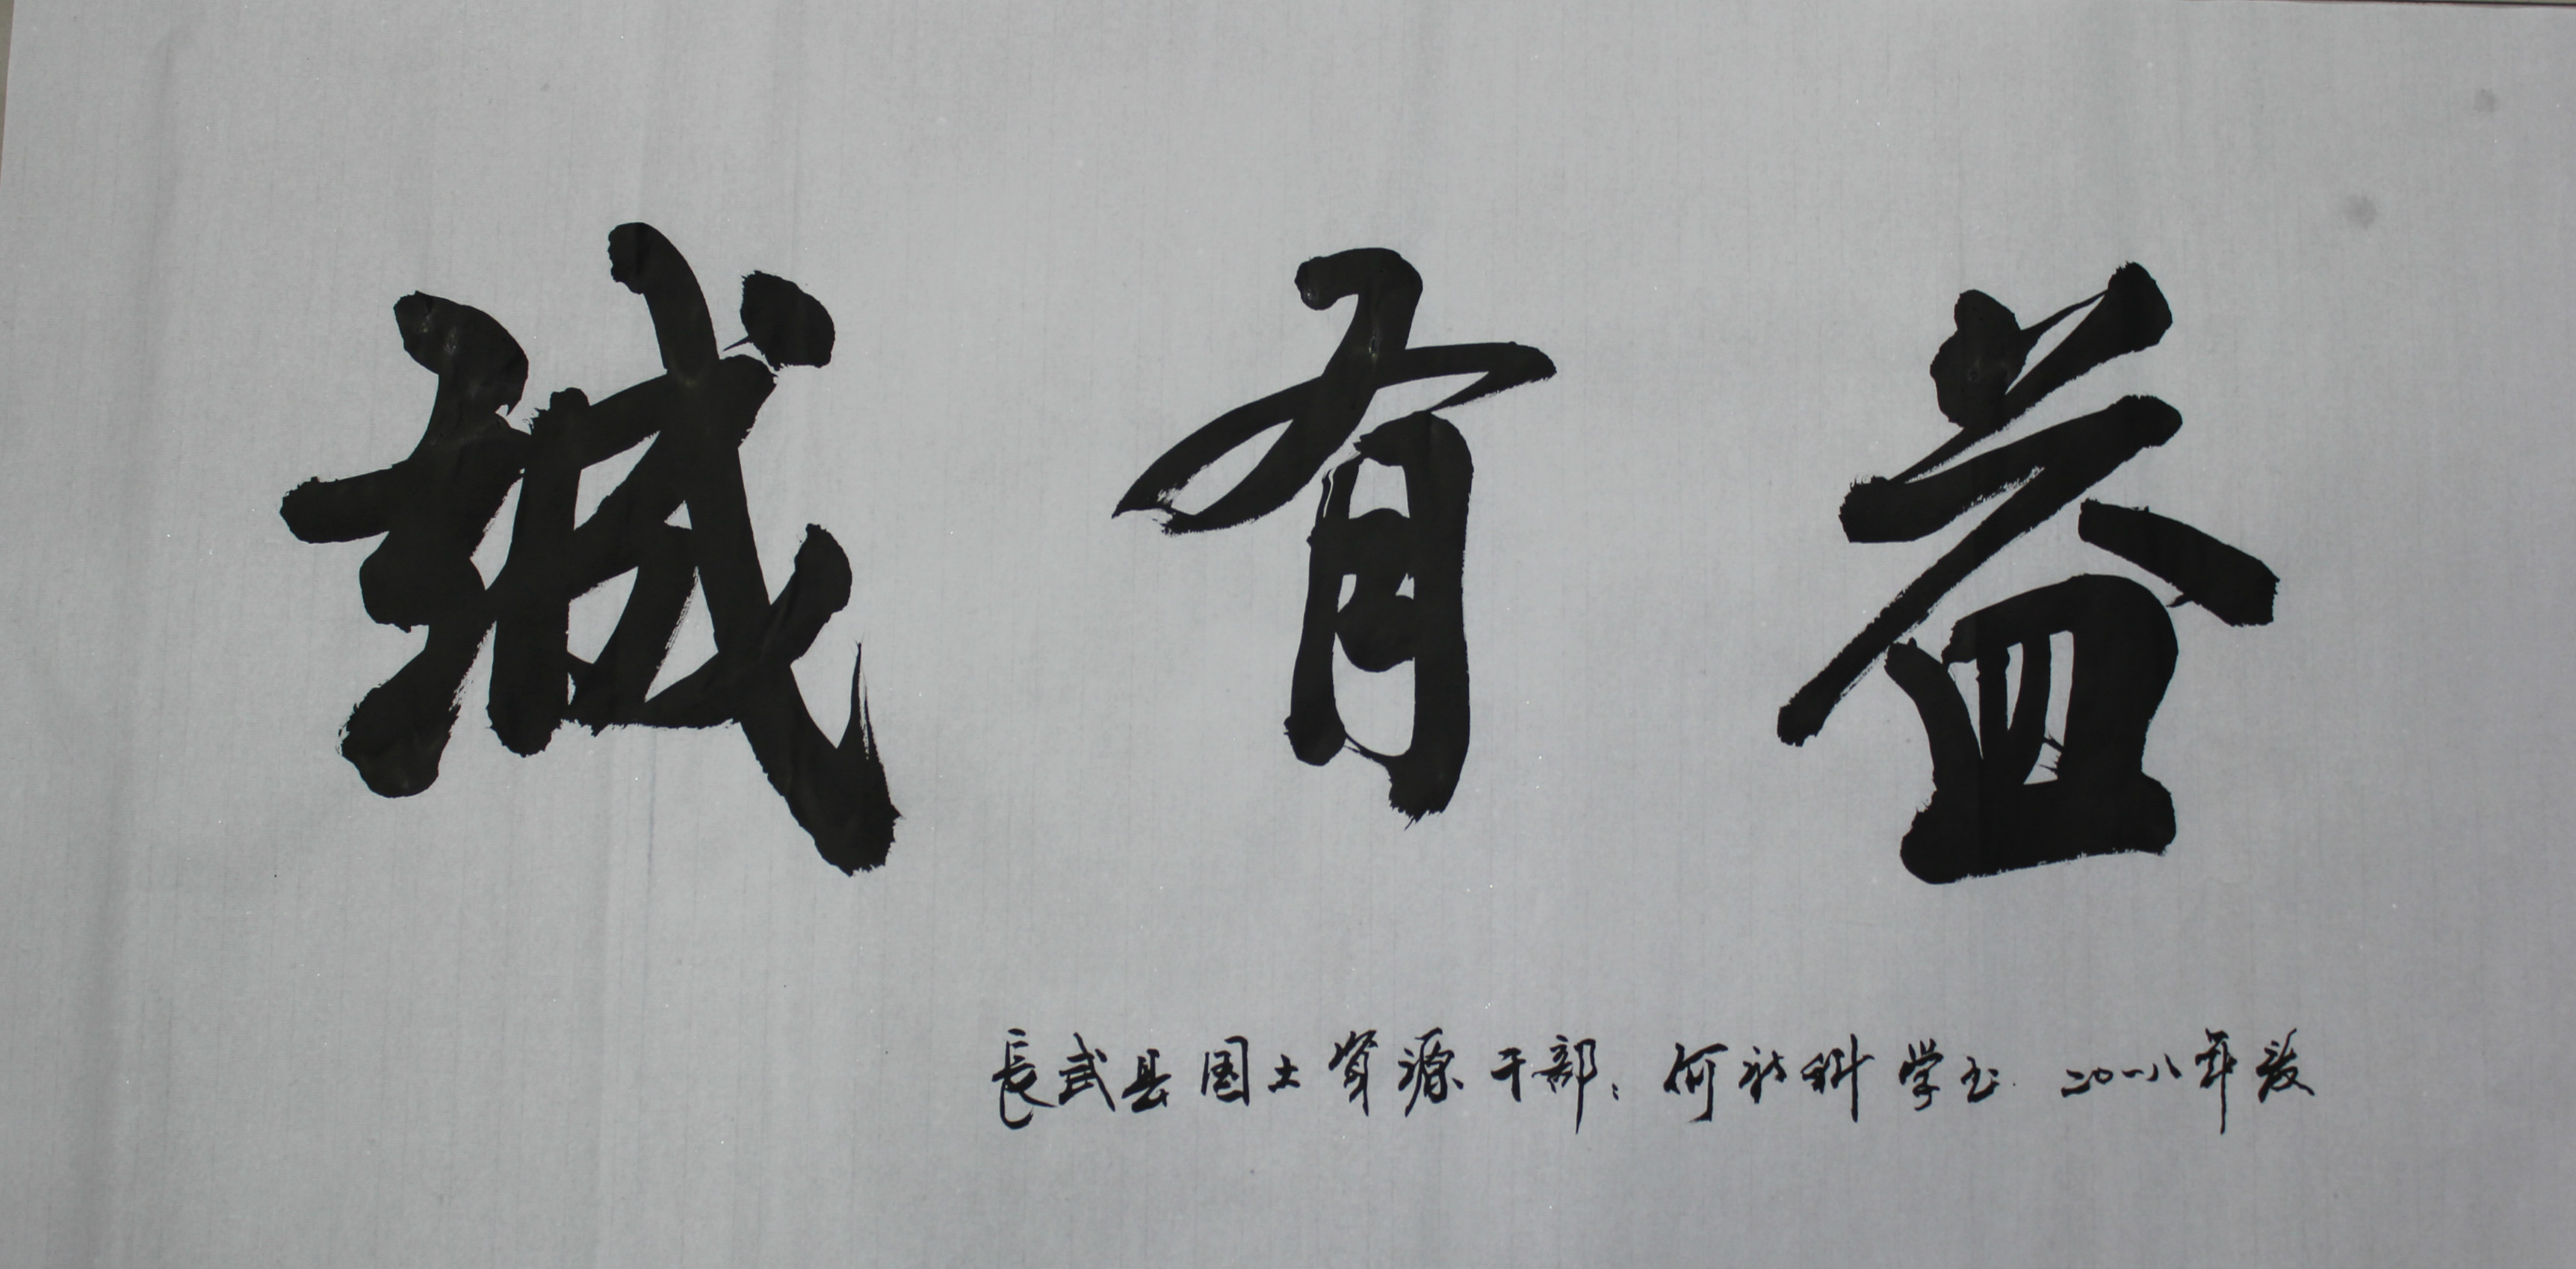 誠有益
長武县国土資源干部：何社科学书 二〇一八年